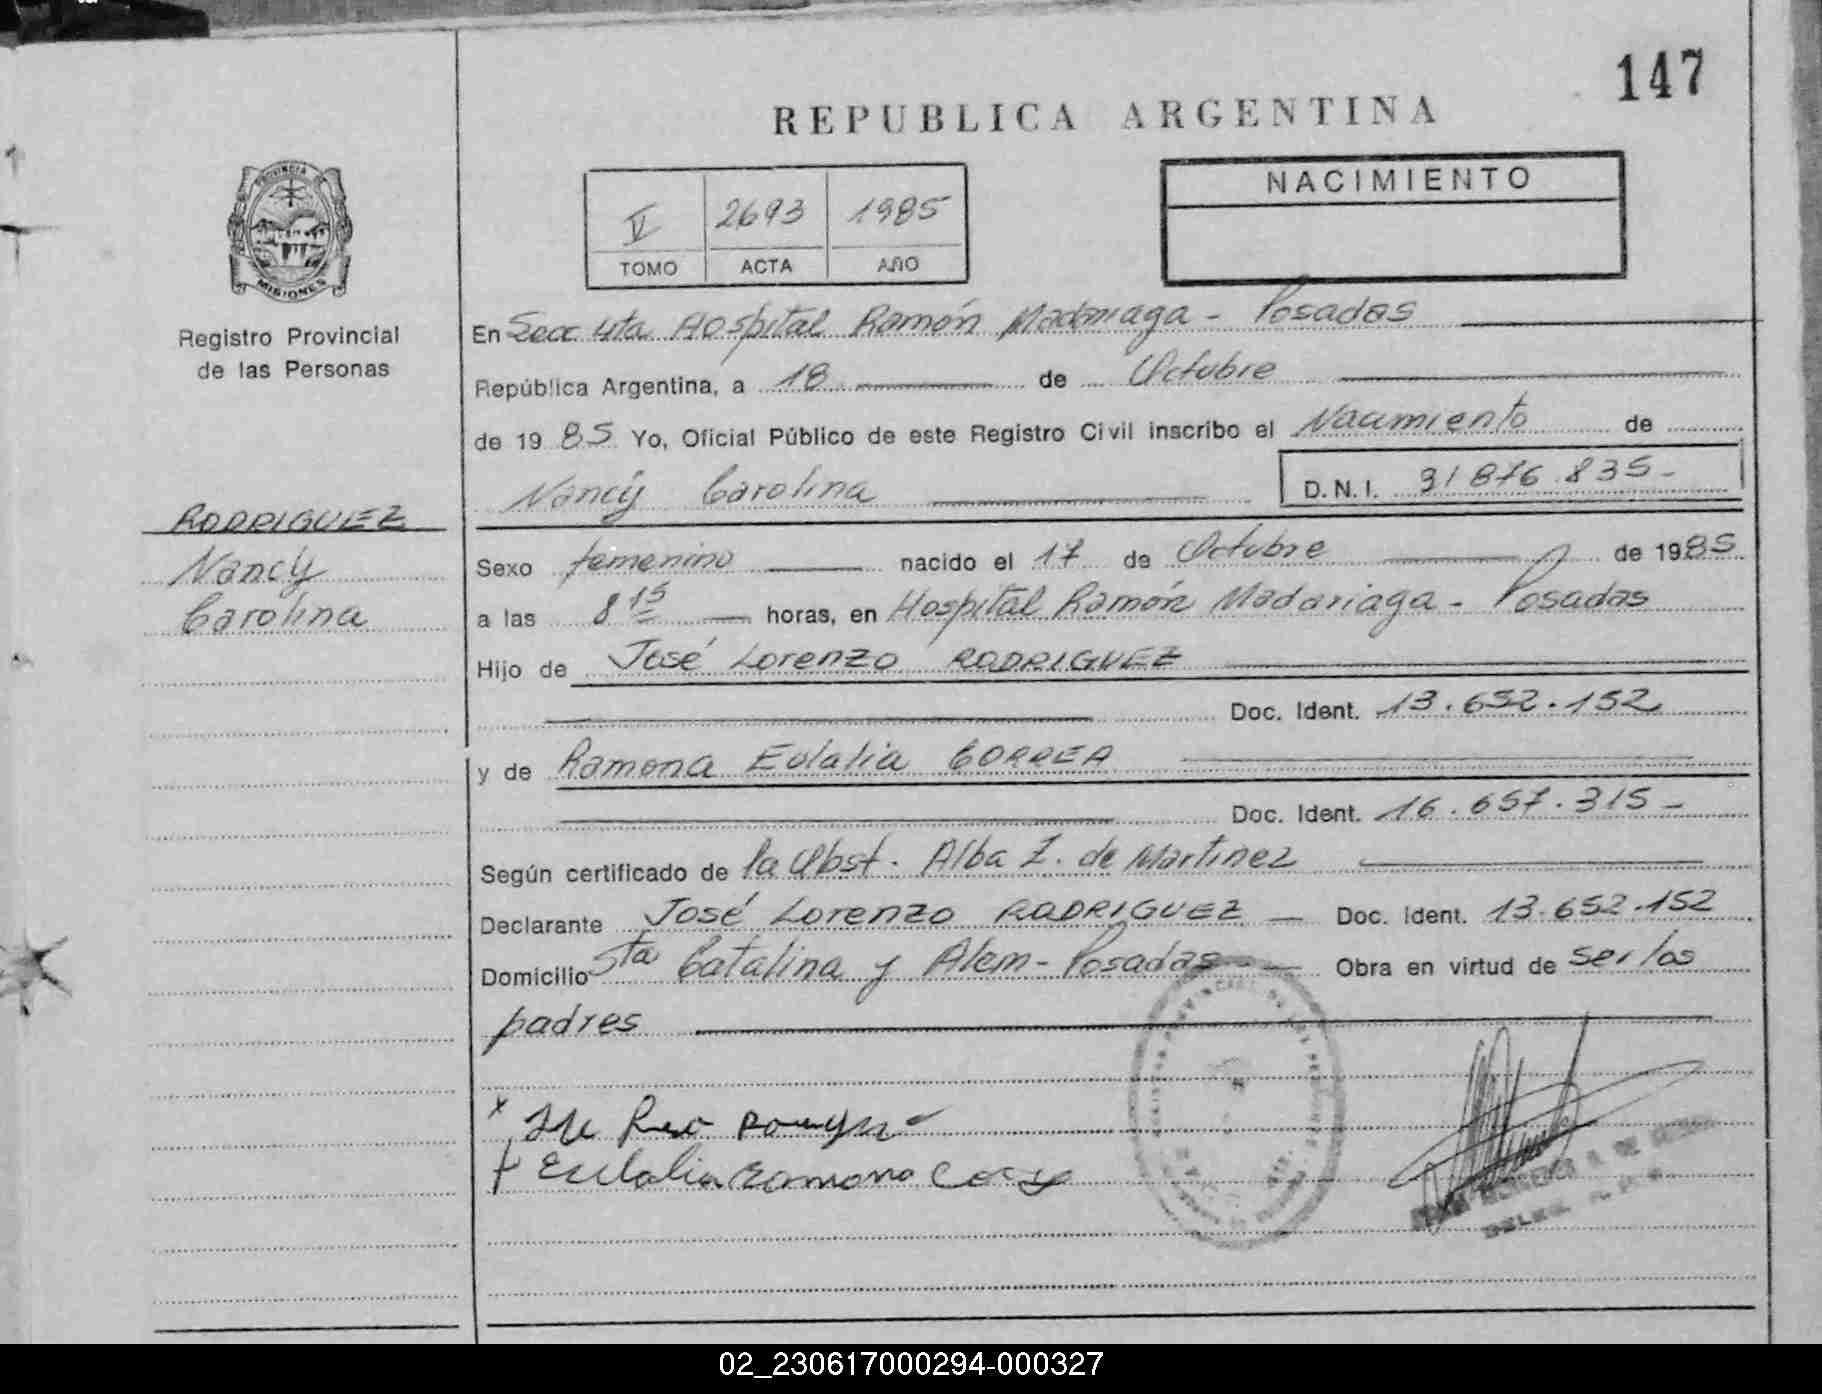 147
REPUBLICA ARGENTINA
PROVINCIA DE
MISIONES
Registro Provincial
de las Personas
V 2693 1985
TOMO ACTA AÑO
NACIMIENTO
En Secc 4ta Hospital Ramón Madariaga - Posadas
República Argentina, a 18 de Octubre
de 1985 Yo, Oficial Público de este Registro Civil inscribo el Nacimiento de
Nancy Carolina D.N.I. 31 876.835-
RODRIGUEZ
Nancy
Carolina
Sexo femenino nacido el 17 de Octubre de 1985
a las 8 15 horas, en Hospital Ramón Madariaga - Posadas
Hijo de José Lorenzo RODRIGUEZ
Doc. Ident. 13.652.152
y de Ramona Eulalia CORREA
Doc. Ident. 16.657.315-
Según certificado de la Obst. Alba Z. de Martinez
Declarante José Lorenzo RODRIGUEZ - Doc. Ident. 13.652.152
Domicilio Sta Catalina y Alem - Posadas - Obra en virtud de ser los
padres
Eulalia Ramona
02_230617000294-000327